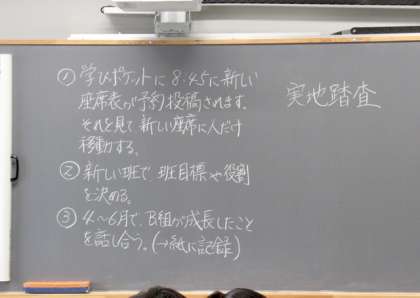 ① 学びポケットに 8:45に新しい
座席表が予約投稿されます。
それを見て新しい座席に人だけ
移動する。
② 新しい班で、班目標や役割
を決める。
③ 4〜6月で、B組が成長したこと
を話し合う。(→紙に記録)
実地踏査